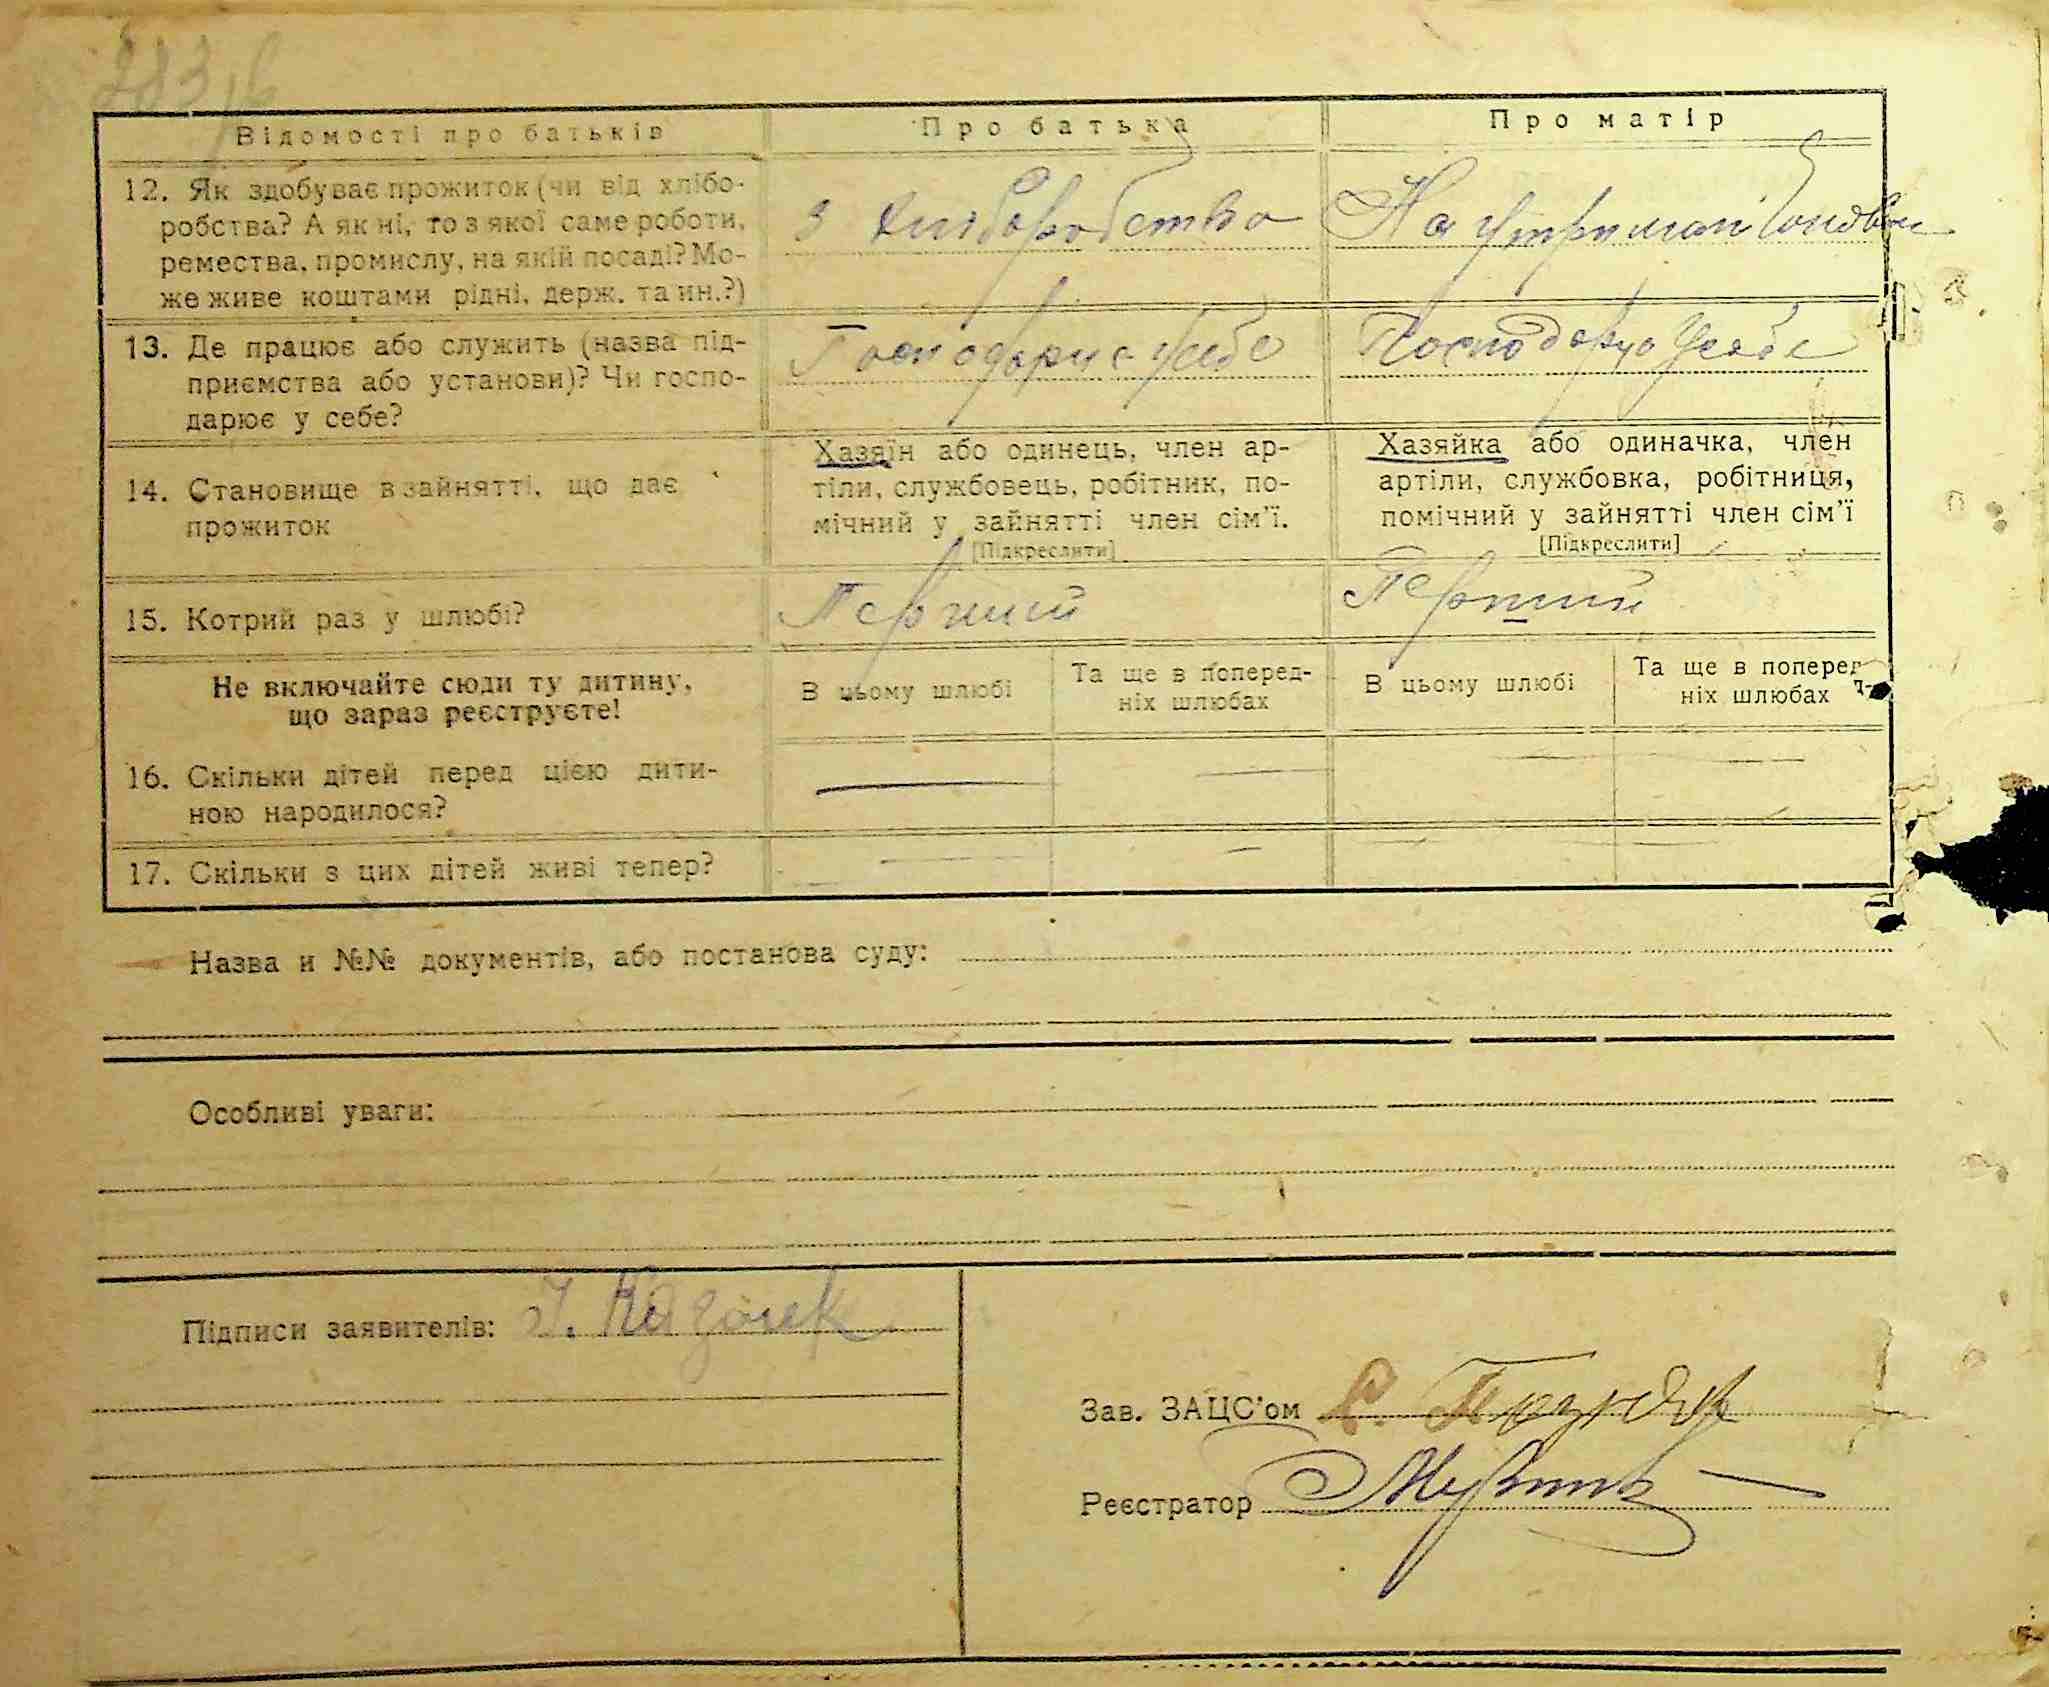 Відомості про батьків
Про батька
Про матір
12. Як здобуває прожиток (чи від хлібо-
робства? А як ні, то з якої саме роботи,
ремества, промислу, на якій посаді? Мо-
же живе коштами рідні, держ. та ин.?)
З хліборобства
На утриман
13. Де працює або служить (назва під-
приємства або установи)? Чи госпо-
дарює у себе?
Господарює у себе
Господарує у себе
14. Становище в зайнятті, що дає
прожиток
Хазяїн або одинець, член ар-
тіли, службовець, робітник, по-
мічний у зайнятті член сім'ї.
[Підкреслити]
Хазяйка або одиначка, член
артіли, службовка, робітниця,
помічний у зайнятті член сім'ї
[Підкреслити]
15. Котрий раз у шлюбі?
Перший
Перший
Не включайте сюди ту дитину,
що зараз реєструєте!
В цьому шлюбі
Та ще в поперед-
ніх шлюбах
В цьому шлюбі
Та ще в поперед-
ніх шлюбах
16. Скільки дітей перед цією дити-
ною народилося?
17. Скільки з цих дітей живі тепер?
Назва и №№ документів, або постанова суду:
Особливі уваги:
Підписи заявителів:
Зав. ЗАЦС'ом
Реєстратор